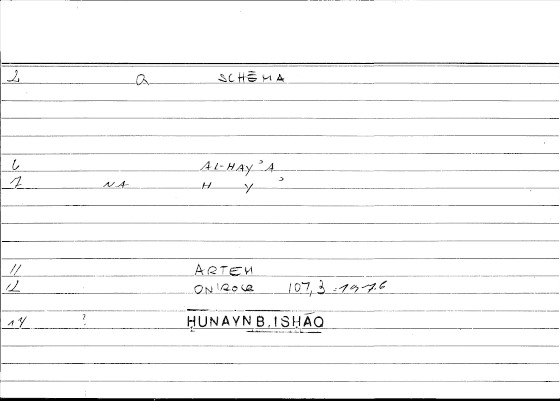 2 Q SCHĒMA
6 Al-HAYʾA
7 NA H Y ʾ
11 ARTEM
12 107,3
14 ? ḤUNAYN B. ISḤĀQ